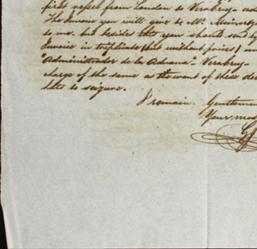 first vessel from London to Vera Cruz
The Invoice you will give to Mr.
to me, but besides that you should send by
Invoice in triplicate (but without prices)
"Administrador de la Aduana" Veracruz
charge of the same as the want of these
liable to seizure.
I remain, Gentlemen
Your most